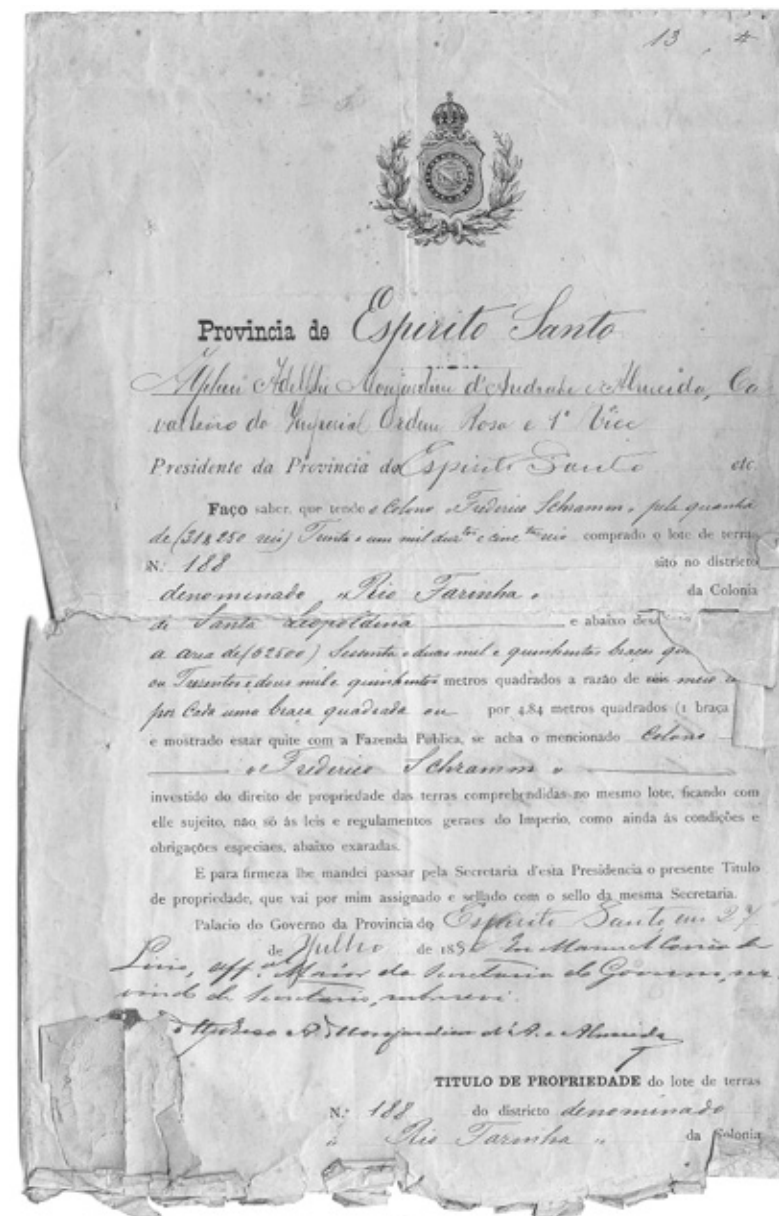 13
Provincia de Espirito Santo
Adelfio Monjardim d'Andrade e Almeida, Ca
valheiro da Imperial Ordem Rosa e 1º Vice
Presidente da Provincia do Espirito Santo etc
Faço saber, que tendo o Colono "Frederico Schramm" pela quantia
de (31$250 reis) Trinta e um mil duz.tos e cinc.ta reis comprado o lote de terras
N. 188 sito no districto
denominado "Rio Farinha" da Colonia
de Santa Leopoldina e abaixo
a area de (62500) Sessenta e duas mil e quinhentas braças
ou Trezentos e dous mil e quinhentos metros quadrados a razão de meio
por Cada uma braça quadrada ou por 4.84 metros quadrados (1 braça
e mostrado estar quite com a Fazenda Publica, se acha o mencionado Colono
"Frederico Schramm"
investido do direito de propriedade das terras comprehendidas no mesmo lote, ficando com
elle sujeito, não só ás leis e regulamentos geraes do Imperio, como ainda ás condições e
obrigações especiaes, abaixo exaradas.
E para firmeza lhe mandei passar pela Secretaria d'esta Presidencia o presente Titulo
de propriedade, que vai por mim assignado e sellado com o sello da mesma Secretaria.
Palacio do Governo da Provincia do Espirito Santo em 27
de Julho de 18 Eu Manuel Corrêa de
Lirio, off.al Maior da Secretaria do Governo, ser
vindo de Secretario, subscrevi.
Monjardim d'A. e Almeida
TITULO DE PROPRIEDADE do lote de terras
N.º 188 do districto denominado
"Rio Farinha" da Colonia